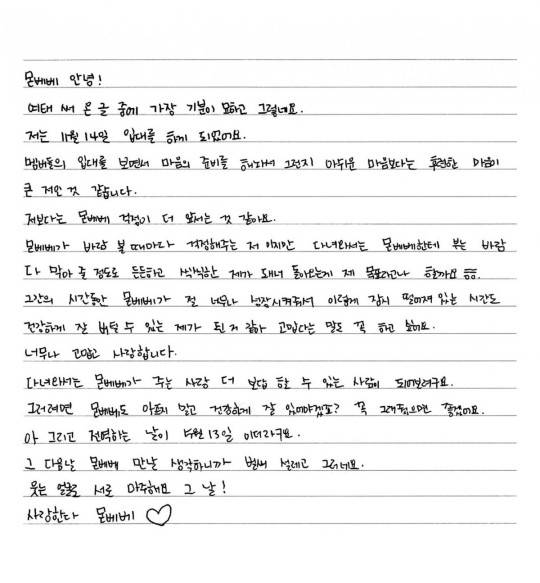 몬베베 안녕!
여태 써 온 글 중에 가장 기분이 묘하고 그렇네요.
저는 11월 14일 입대를 하게 되었어요.
멤버들의 입대를 보면서 마음의 준비를 해놔서 그런지 아쉬운 마음보다는 후련한 마음이
큰 거인 것 같습니다.
저보다는 몬베베 걱정이 더 앞서는 것 같아요.
몬베베가 바람 불 때마다 걱정해주는 저 이지만 다녀와서는 몬베베한테 부는 바람
다 막아 줄 정도로 든든하고 씩씩한 제가 돼서 돌아오는게 제 목표라고나 할까요 ㅎㅎ.
그간의 시간동안 몬베베가 절 너무나 성장시켜줘서 이렇게 잠시 떨어져 있는 시간도
건강하게 잘 버틸 수 있는 제가 된 거 같아 고맙다는 말도 꼭 하고 싶어요.
너무나 고맙고 사랑합니다.
다녀와서는 몬베베가 주는 사랑 더 보답 할 수 있는 사람이 되어보려구요.
그러려면 몬베베도 아프지 말고 건강하게 잘 있어야겠죠? 꼭 그래줬으면 좋겠어요.
아 그리고 전역하는 날이 5월 13일 이더라구요.
그 다음날 몬베베 만날 생각하니까 벌써 설레고 그러네요.
웃는 얼굴로 서로 마주해요 그 날!
사랑한다 몬베베 ♡